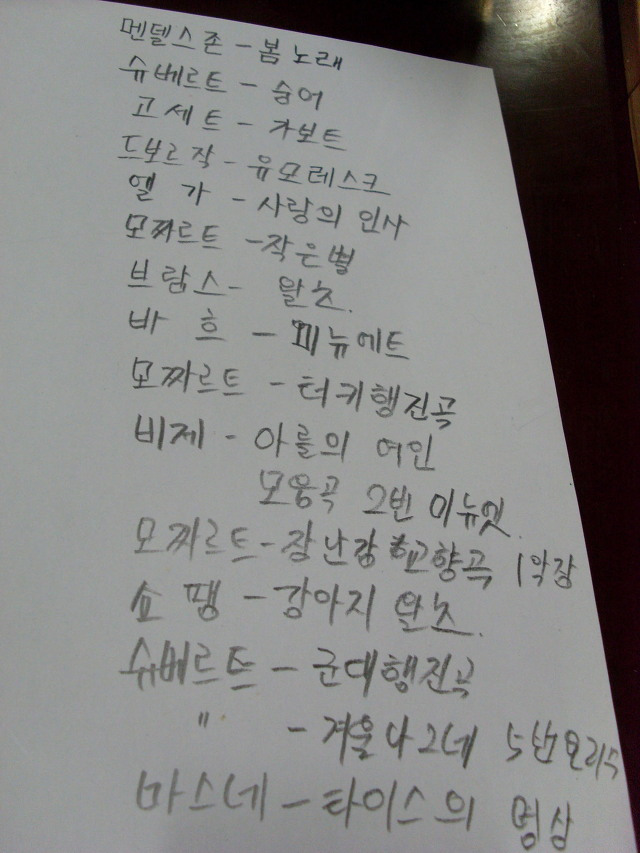 멘델스존 - 봄노래
슈베르트 - 숭어
고세트 - 가보트
드보르작 - 유모레스크
엘가 - 사랑의 인사
모짜르트 - 작은별
브람스 - 왈츠.
바흐 - 미뉴에트
모짜르트 - 터키행진곡
비제 - 아를의 여인
모음곡 2번 미뉴엣.
모짜르트 - 장난감 교향곡 1악장
쇼팽 - 강아지 왈츠.
슈베르트 - 군대행진곡
" - 겨울나그네 5번 보리수
마스네 - 타이스의 명상